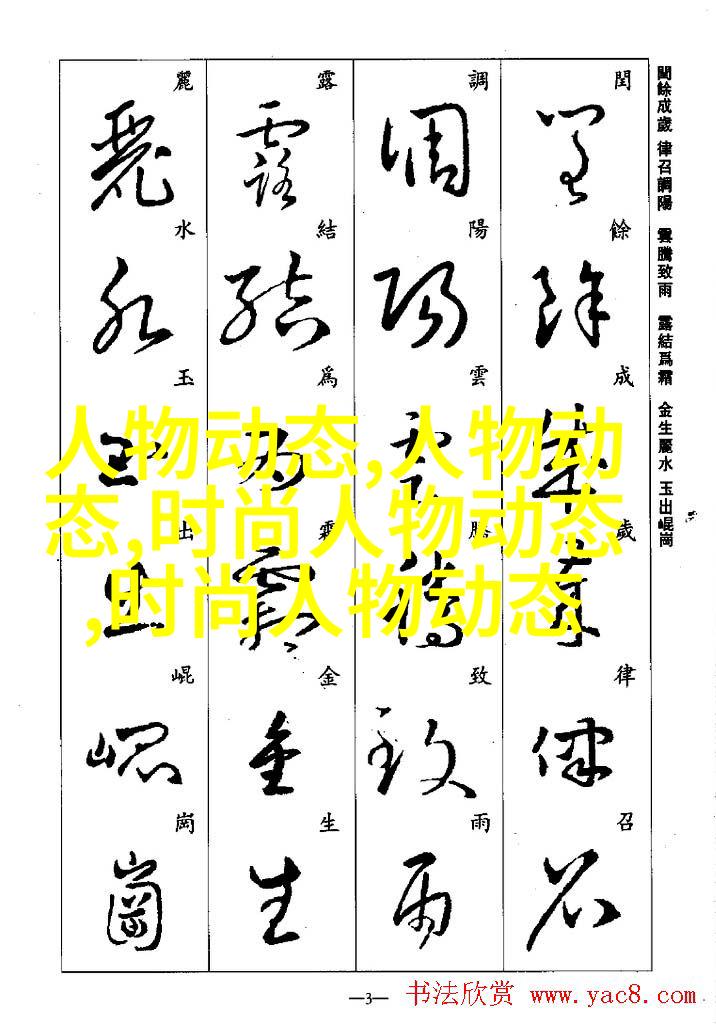 閏餘成歲 律召調陽 雲騰致雨 露結爲霜 金生麗水 玉出崐崗
閏 餘 成 歲 律 召
調 陽 雲 騰 致 雨
露 結 爲 霜 金 生
麗 水 玉 出 崐 崗
人物动态,人物动
态,时尚人物动态
,时尚人物动态
—3—
书法欣赏 www.yac8.com